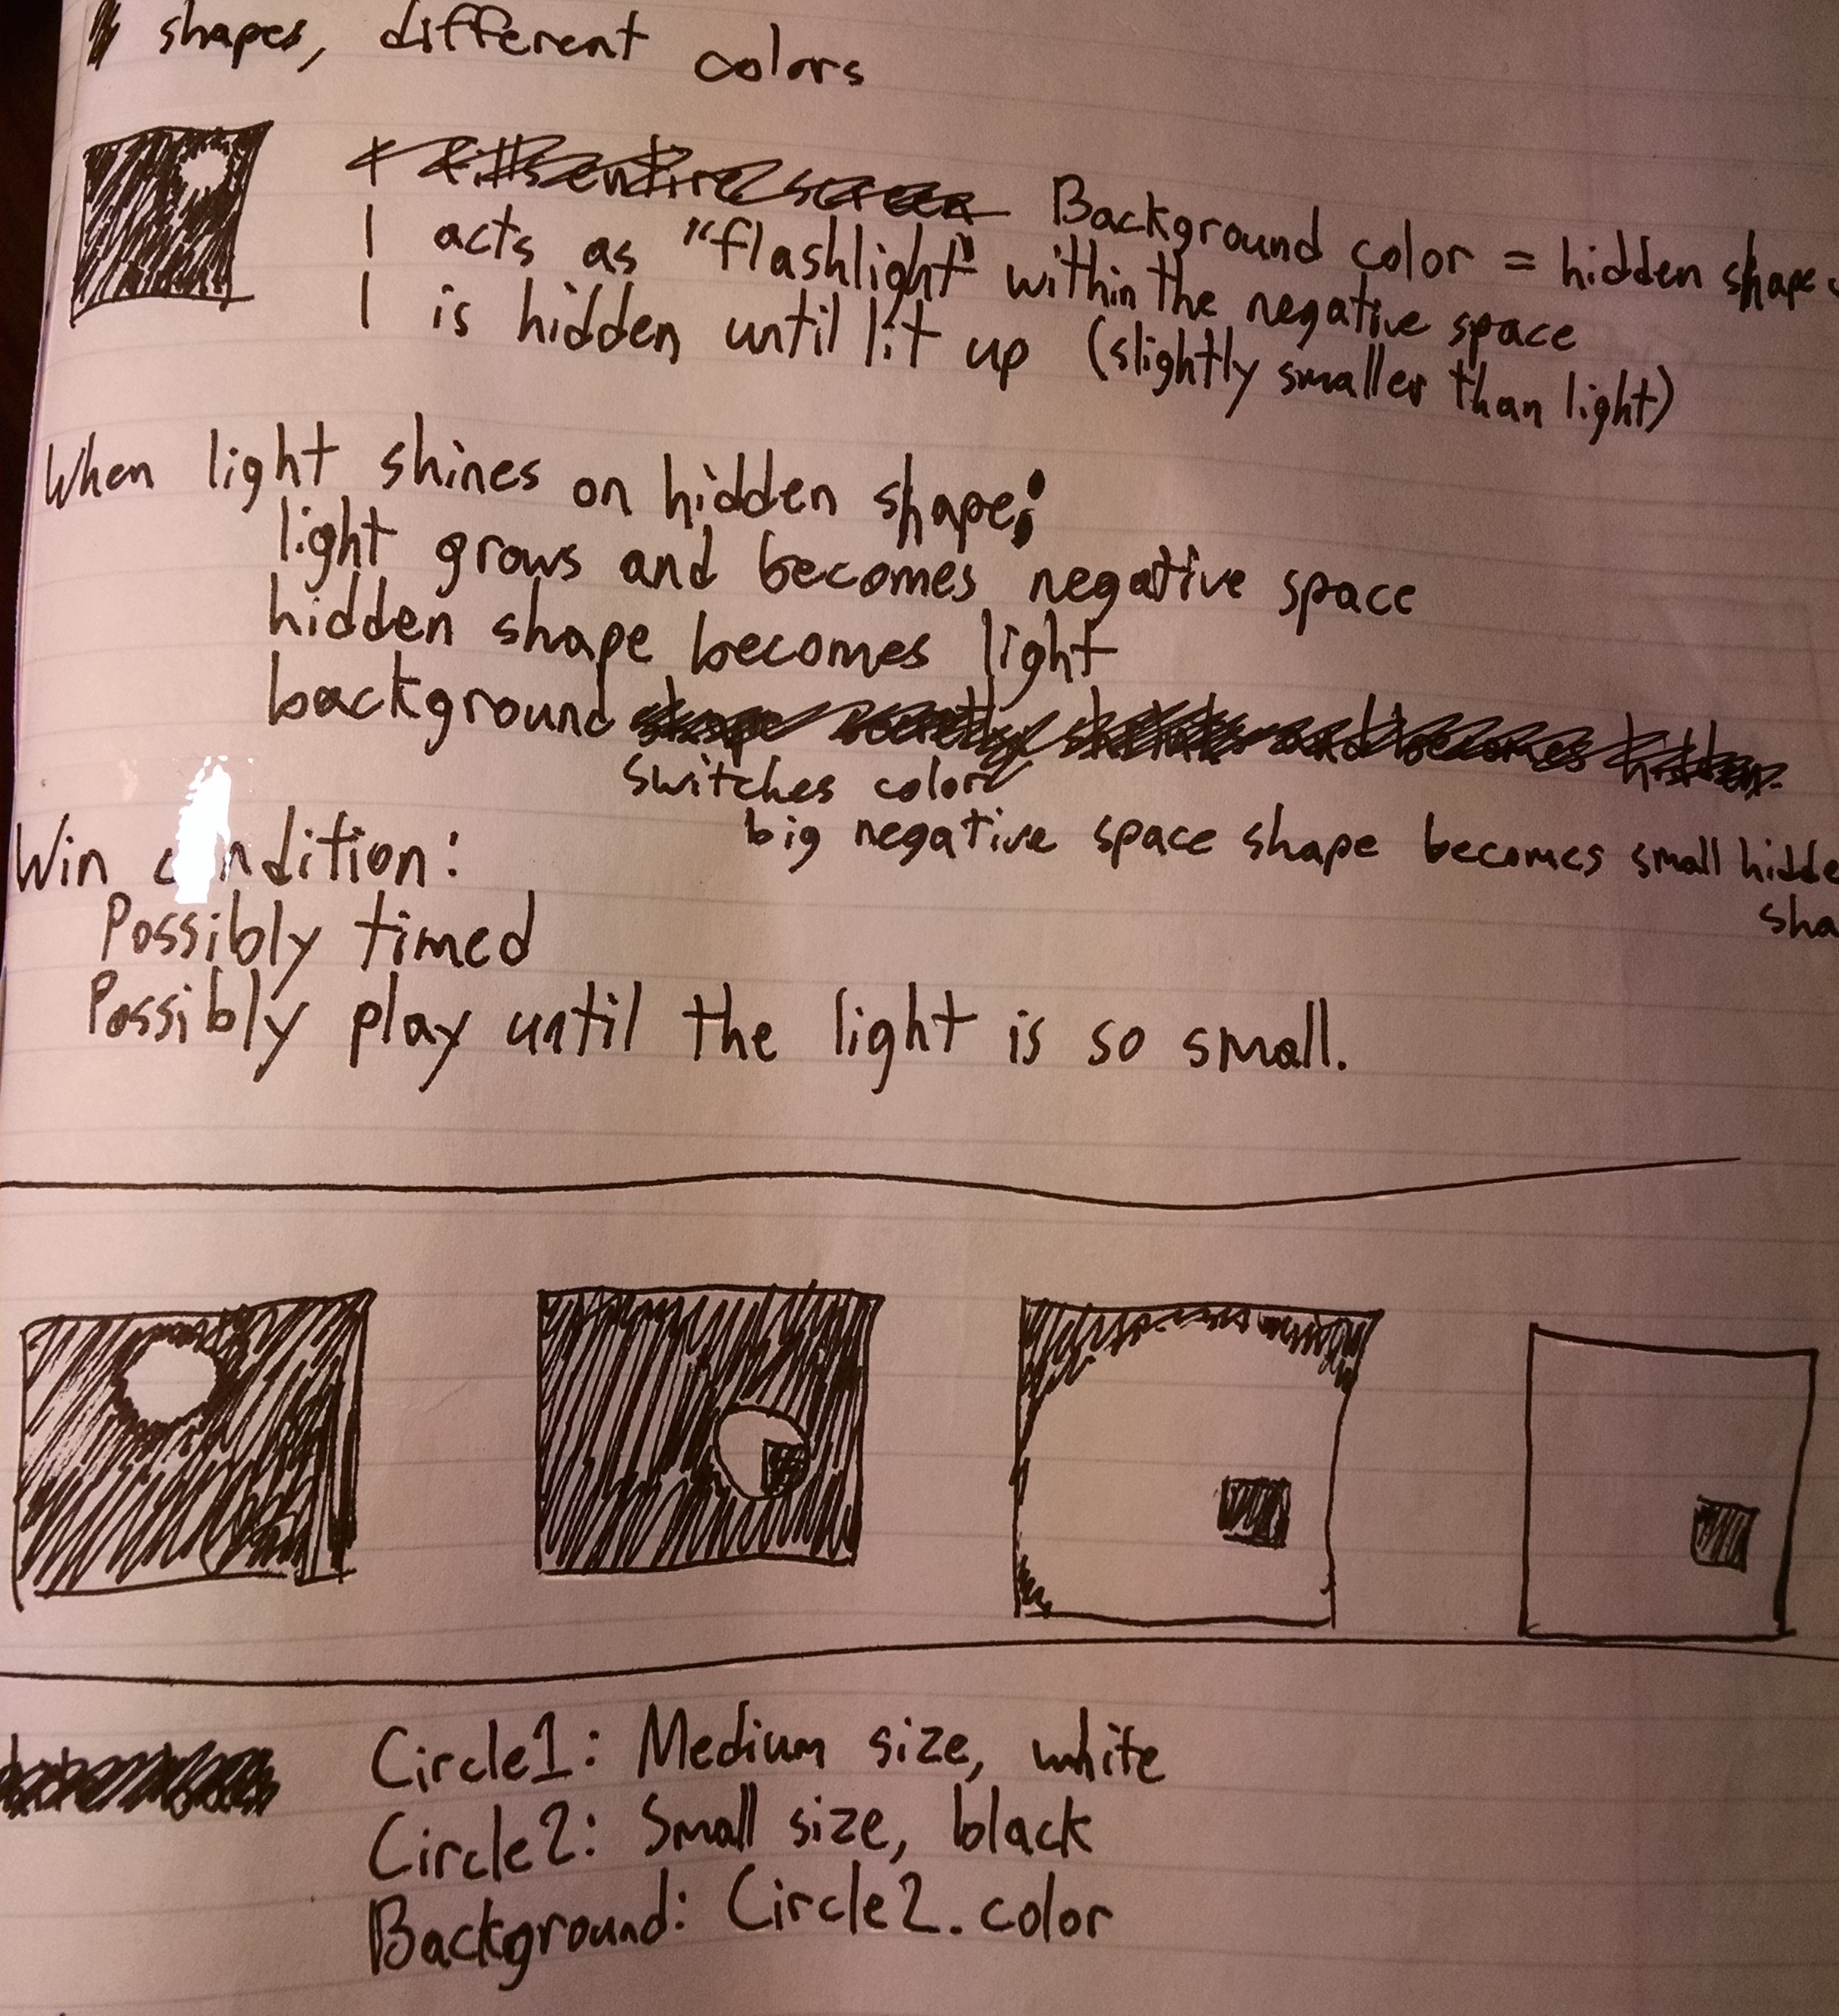 shapes, different colors
Background color = hidden shape
1 acts as "flashlight" within the negative space
1 is hidden until lit up (slightly smaller than light)
When light shines on hidden shape:
light grows and becomes negative space
hidden shape becomes light
background
switches color
big negative space shape becomes small hidde
sha
Win condition:
Possibly timed
Possibly play until the light is so small.
Circle1: Medium size, white
Circle2: Small size, black
Background: Circle2.color